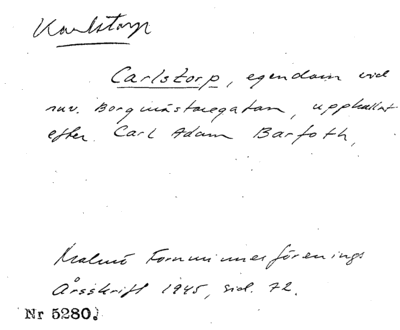 Karlstorp
Carlstorp, egendom vid
nuv. Borgmästaregatan, uppkallat
efter Carl Adam Barfoth,
Malmö Fornminnesförenings
Årsskrift 1945, sid. 72.
Nr 5280.